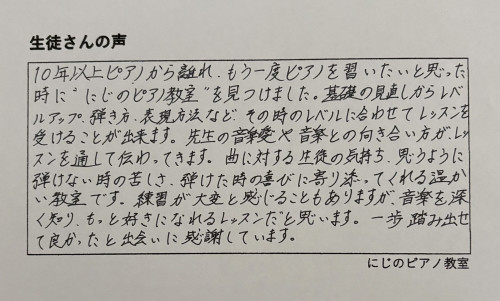 生徒さんの声
10年以上ピアノから離れ、もう一度ピアノを習いたいと思った
時に"にじのピアノ教室"を見つけました。基礎の見直しからレベ
ルアップ、弾き方、表現方法など、その時のレベルに合わせてレッスンを
受けることが出来ます。先生の音楽愛や音楽との向き合い方が、レッ
スンを通して伝わってきます。曲に対する生徒の気持ち、思うように
弾けない時の苦しさ、弾けた時の喜びに寄り添ってくれる温か
い教室です。練習が大変と感じることもありますが、音楽を深
く知り、もっと好きになれるレッスンだと思います。一歩踏み出せ
て良かったと出会いに感謝しています。
にじのピアノ教室